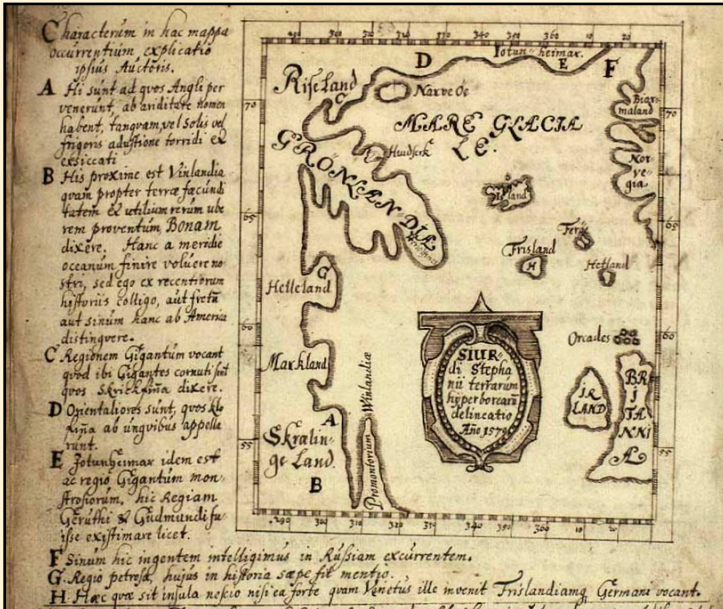 Characterum in hac mappa
occurrentium explicatio
ipsius Auctoris.
A Hi sunt ad quos Angli per
venerunt, ab ariditate nomen
habent, tanquam vel Solis vel
frigoris adustione torridi et
exsiccati
B His proxime est Vinlandia
quam propter terræ fæcundi
tatem et utilium rerum ube
rem proventum Bonam
dixere. Hanc a meridie
oceanum finire voluere no
stri, sed ego ex recentiorum
historiis colligo, aut fretū
aut sinum hanc ab America
distinguere.
C Regionem Gigantum vocant
quod ibi Gigantes cornuti sint
quos Skrickfinna dixere.
D Orientaliores sunt, quos Klo
fiña ab unguibus appella
runt.
E Jotunheimar idem est
ac regio Gigantum mon
strosorum, hic Regiam
Geruthi & Gudmundi fu
isse existimare licet.
F Sinum hic ingentem intelligimus in Russiam excurrentem.
G. Regio petrosa, hujus in historia sæpe fit mentio.
H. Hæc quæ sit insula nescio nisi ea forte quam Venetus ille invenit Frislandiamq Germani vocant.
290 300 310 320 330 340 350 360 10 20
Jotun-heimar
D
E
F
RiseLand
C
Narve Oe
Biar
maland
70
70
MARE GLACIA
LE
Huidserk
Nor
ve
gia
GRONLANDIA
Island
65
65
Feroe
Frisland
H
Hetland
G
Helleland
Orcades
60
60
Markland
SIUR
di Stepha
nii terrarum
hyperborearū
delineatio
Año 1570
IR
LAND
BR
I T
ANNI
A
Promontorium Winlandiæ
A
Skralin
ge Land
B
55
55
290 300 310 320 330 340 350 360 10 20